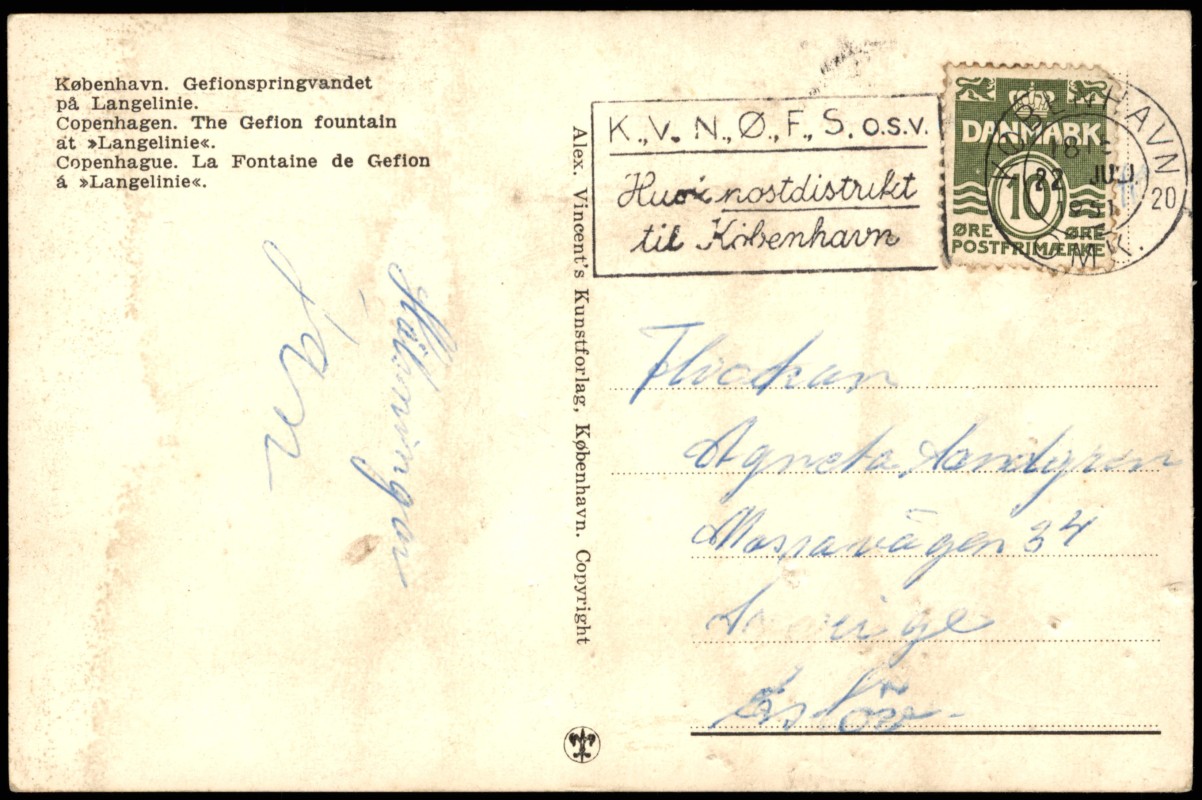 København. Gefionspringvandet
på Langelinie.
Copenhagen. The Gefion fountain
at »Langelinie«.
Copenhague. La Fontaine de Gefion
á »Langelinie«.
Hälsningar
Alex. Vincent's Kunstforlag, København. Copyright
K., V., N., Ø., F., S. o.s.v.
Husk postdistrikt
til København
DANMARK
10
ØRE ØRE
POSTFRIMÆRKE
KØBENHAVN
22 JULI
1951
20
OMK.
Flickan
Agneta Sandgren
34
Sverige
Eslöv